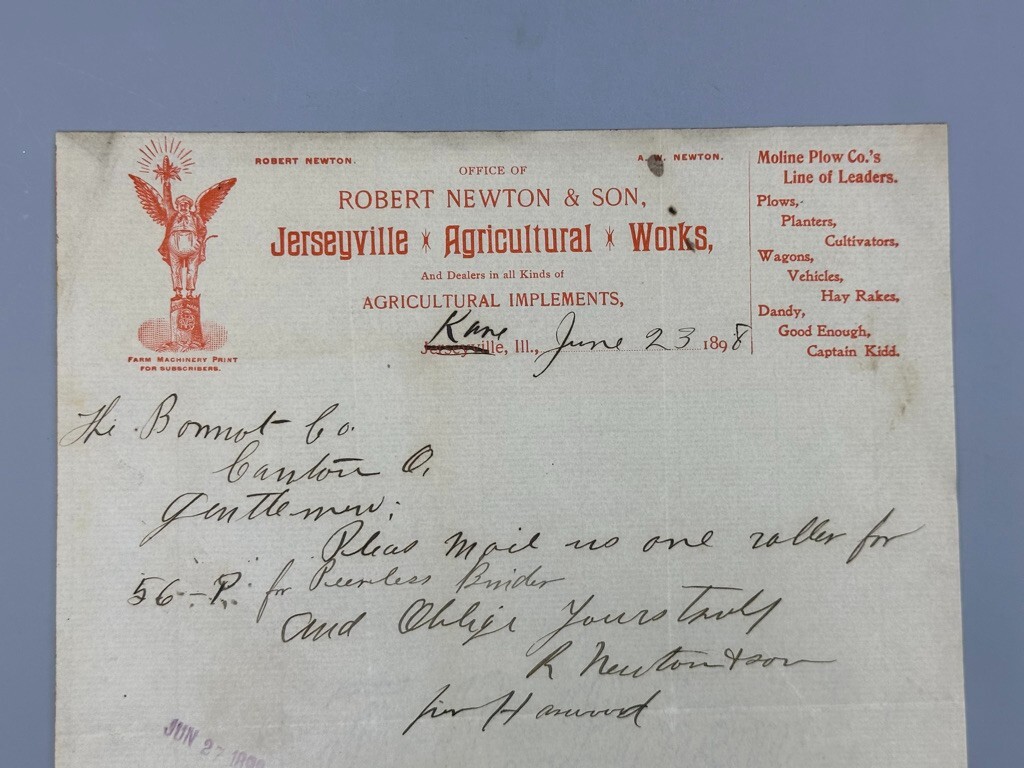 ROBERT NEWTON.
A. W. NEWTON.
OFFICE OF
ROBERT NEWTON & SON,
Jerseyville Agricultural Works,
And Dealers in all Kinds of
AGRICULTURAL IMPLEMENTS,
Kane
Jerseyville, Ill., June 23 1898
FARM MACHINERY PRINT
FOR SUBSCRIBERS.
Moline Plow Co.'s
Line of Leaders.
Plows,
Planters,
Cultivators,
Wagons,
Vehicles,
Hay Rakes,
Dandy,
Good Enough,
Captain Kidd.
The Bonnot Co.
Canton O.
Gentlemen;
Pleas mail us one roller for
56-P. for Peerless Binder
and Oblige Yours truly
R Newton & son
per
JUN 27 189